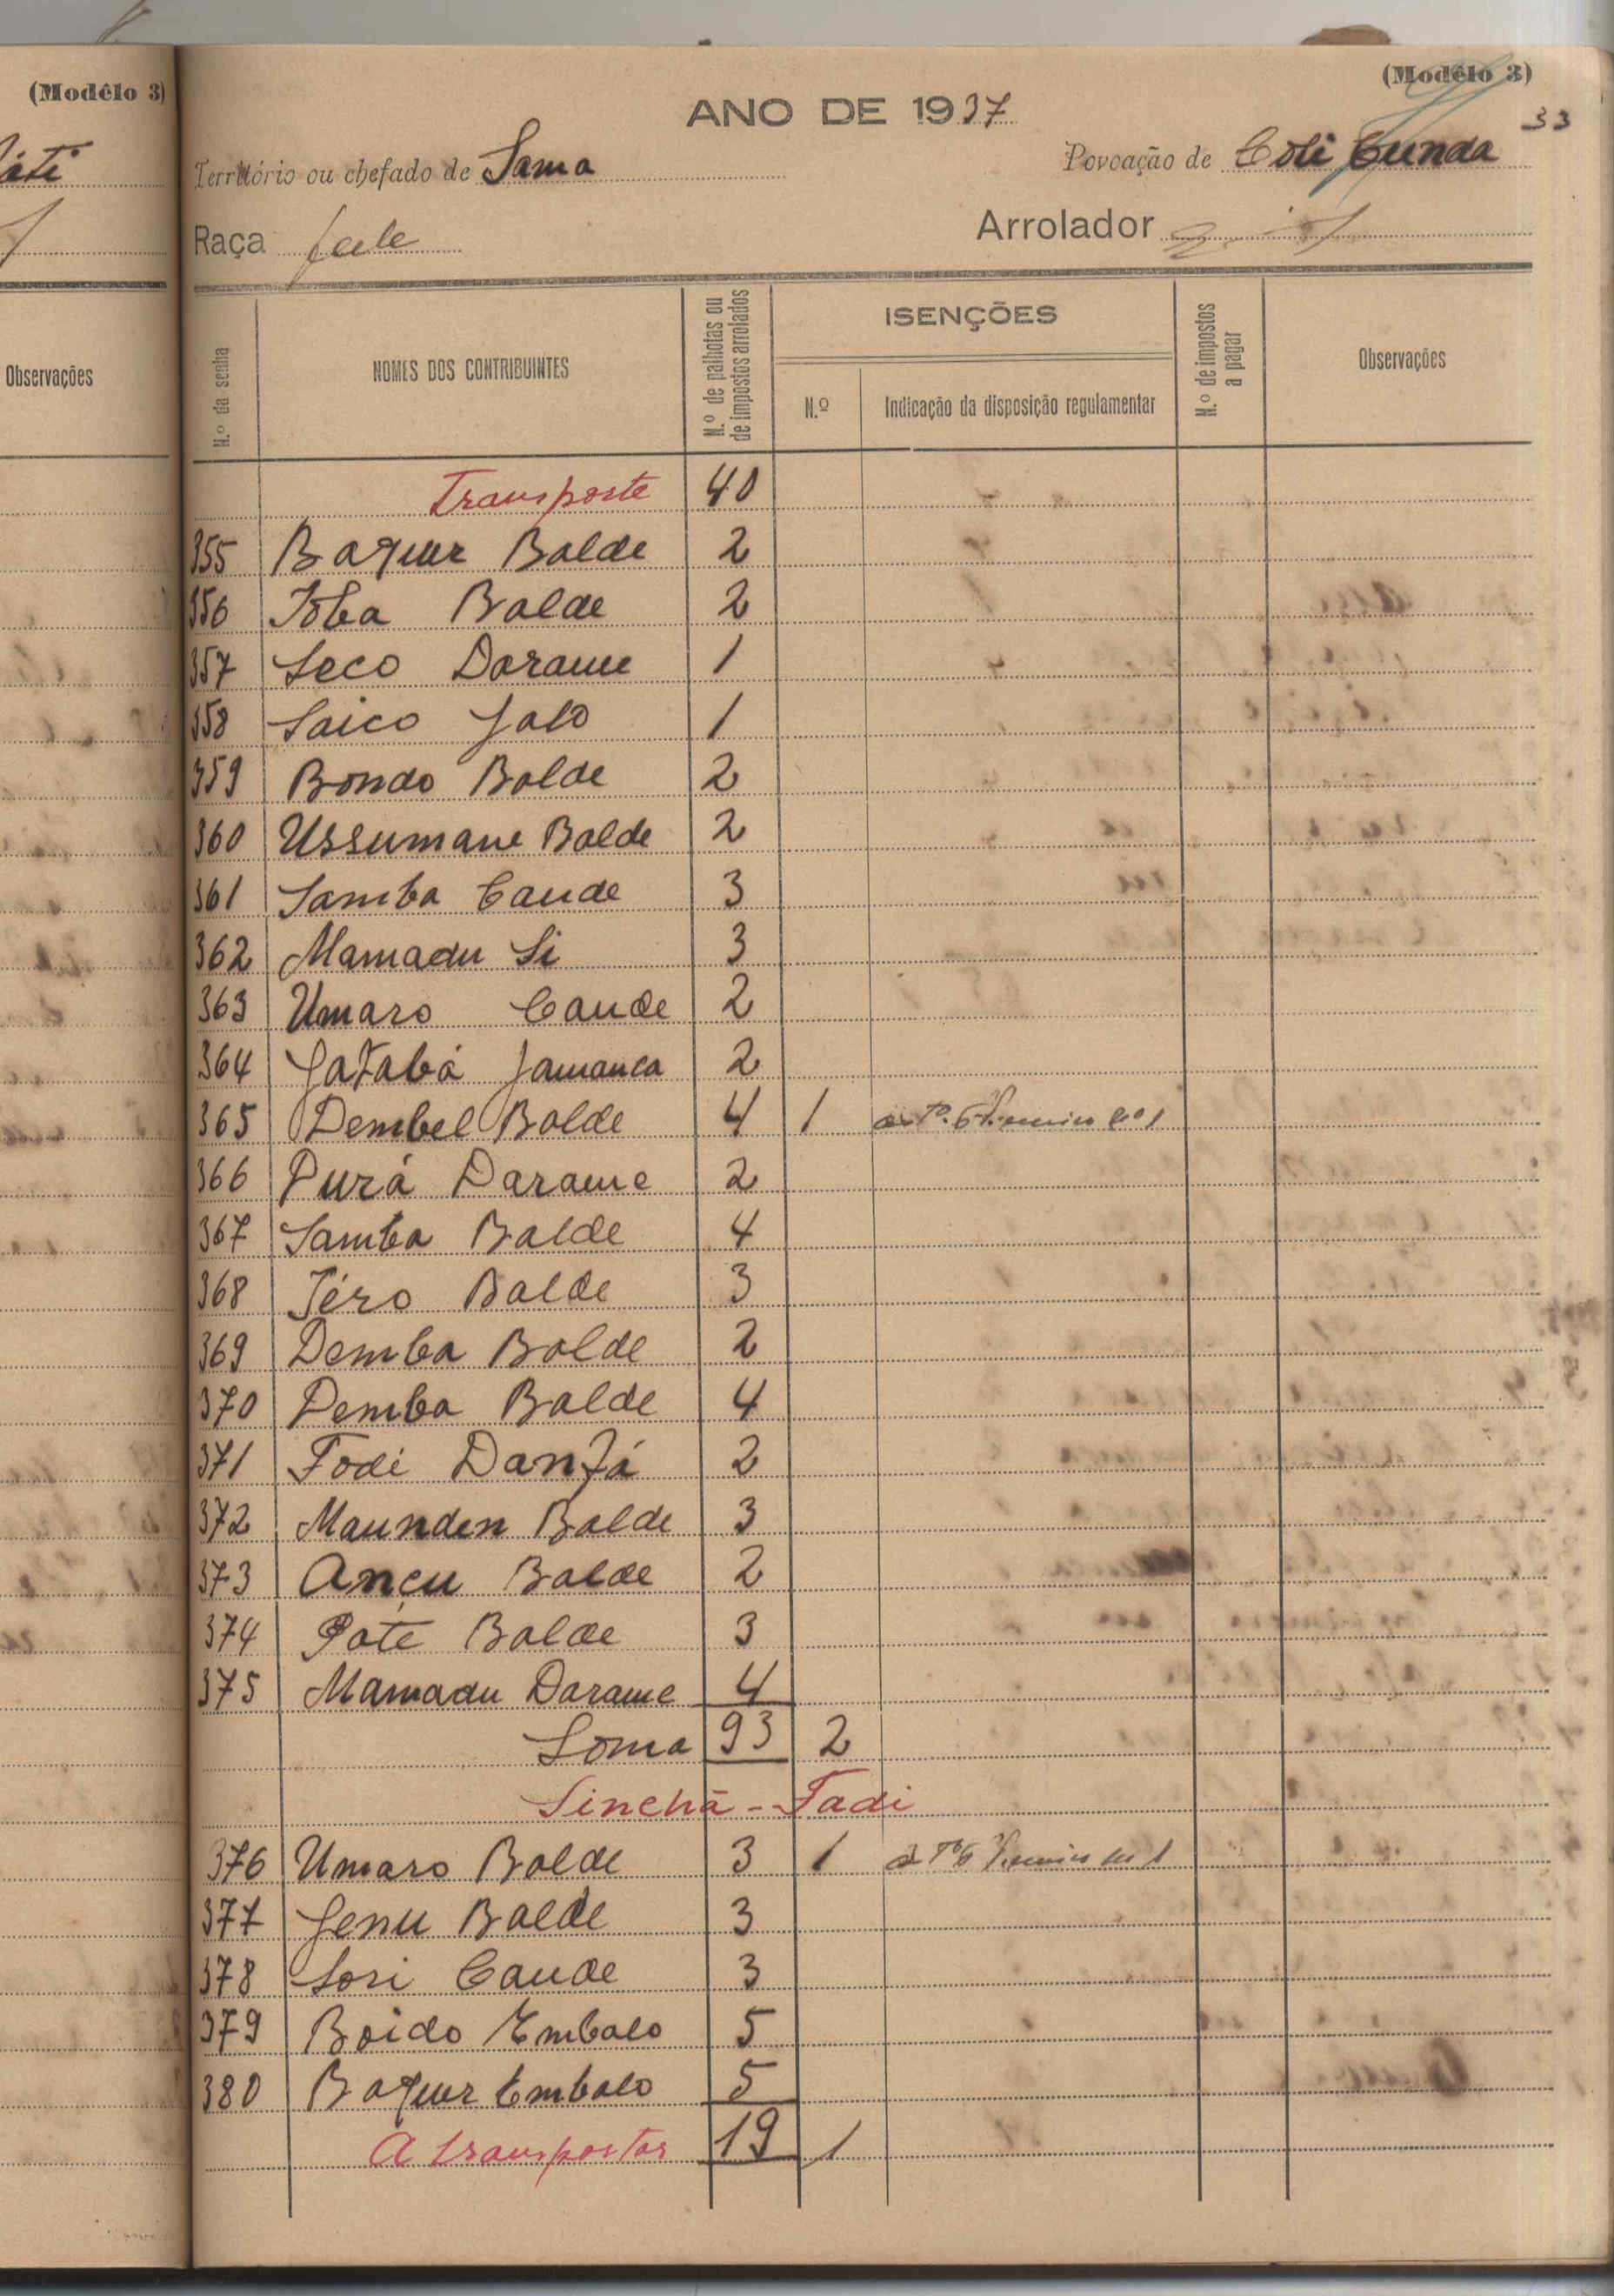 (Modêlo 3)
Observações
(Modêlo 3)
33
ANO DE 1937
Território ou chefado de Sama
Povoação de Coli Cunda
Raça fula
Arrolador
N.º da senha
NOMES DOS CONTRIBUINTES
N.º de palhotas ou de impostos arrolados
ISENÇÕES
N.º
Indicação da disposição regulamentar
N.º de impostos a pagar
Observações
Transporte 40
355 Baquer Balde 2
356 Ioba Balde 2
357 Seco Darame 1
358 Saico Jalo 1
359 Bondo Balde 2
360 Ussumane Balde 2
361 Samba Cande 3
362 Mamadu Si 3
363 Umaro Cande 2
364 Jatabá Jamanca 2
365 Dembel Balde 4 1
366 Purá Darame 2
367 Samba Balde 4
368 Iéro Balde 3
369 Demba Balde 2
370 Demba Balde 4
371 Fodé Danfá 2
372 Maunden Balde 3
373 Ançu Balde 2
374 Pate Balde 3
375 Mamadu Darame 4
Soma 93 2
Sinchã - Fadi
376 Umaro Balde 3 1
377 Jenu Balde 3
378 Sori Cande 3
379 Boido Embalo 5
380 Baquer Embalo 5
A transportar 19 1